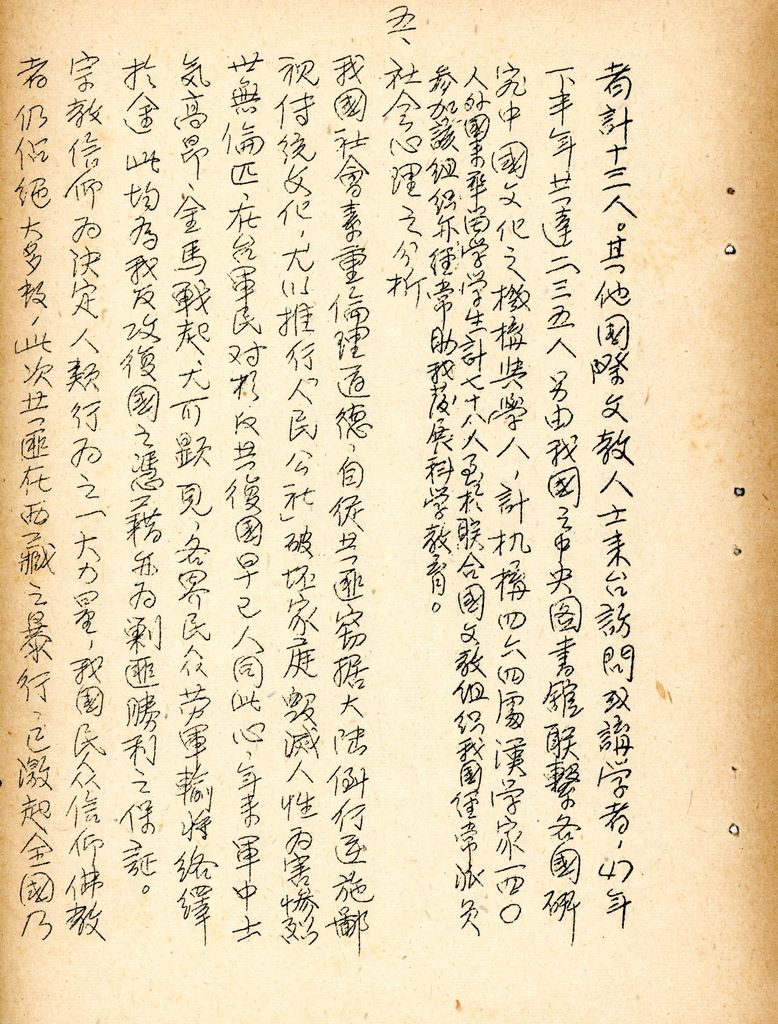 者計十三人。其他國際文教人士来台訪問或講学者，47年
下半年共達二三五人另由我國之中央图書館联繫各國研
究中國文化之機構與學人，計机構四六四處漢学家一四〇
人外國来華留学学生計七十八人至於联合國文教組织我國經常派員
参加該組织亦經常助我發展科学教育。
五、社会心理之分析
我國社會素重倫理道德，自從共匪窃据大陆倒行逆施鄙
視传統文化，尤以推行「人民公社」破坏家庭毀滅人性為害慘烈
世無倫匹，在台軍民对於反共復國早已人同此心，年来軍中士
気高昂，金馬戰起尤可顕見，各界民众劳軍輸将络繹
於途此均為我反攻復國之憑藉亦為剿匪勝利之保証。
宗教信仰为决定人類行为之一大力量，我國民众信仰佛教
者仍佔絕大多数，此次共匪在西藏之暴行，已激起全國乃